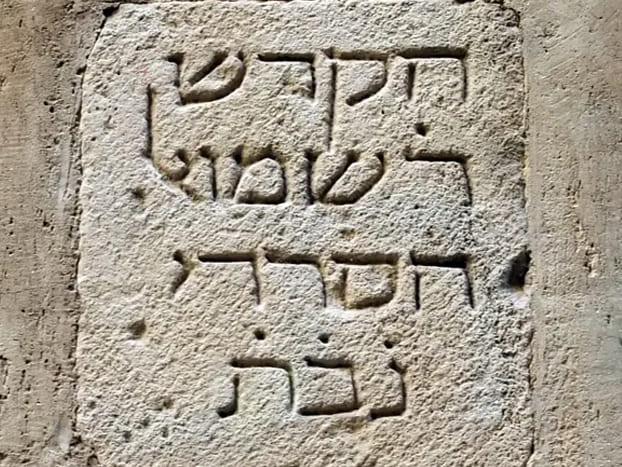 הקדש
רׄ שמואל
הסרדי
נׄבׄתׄ